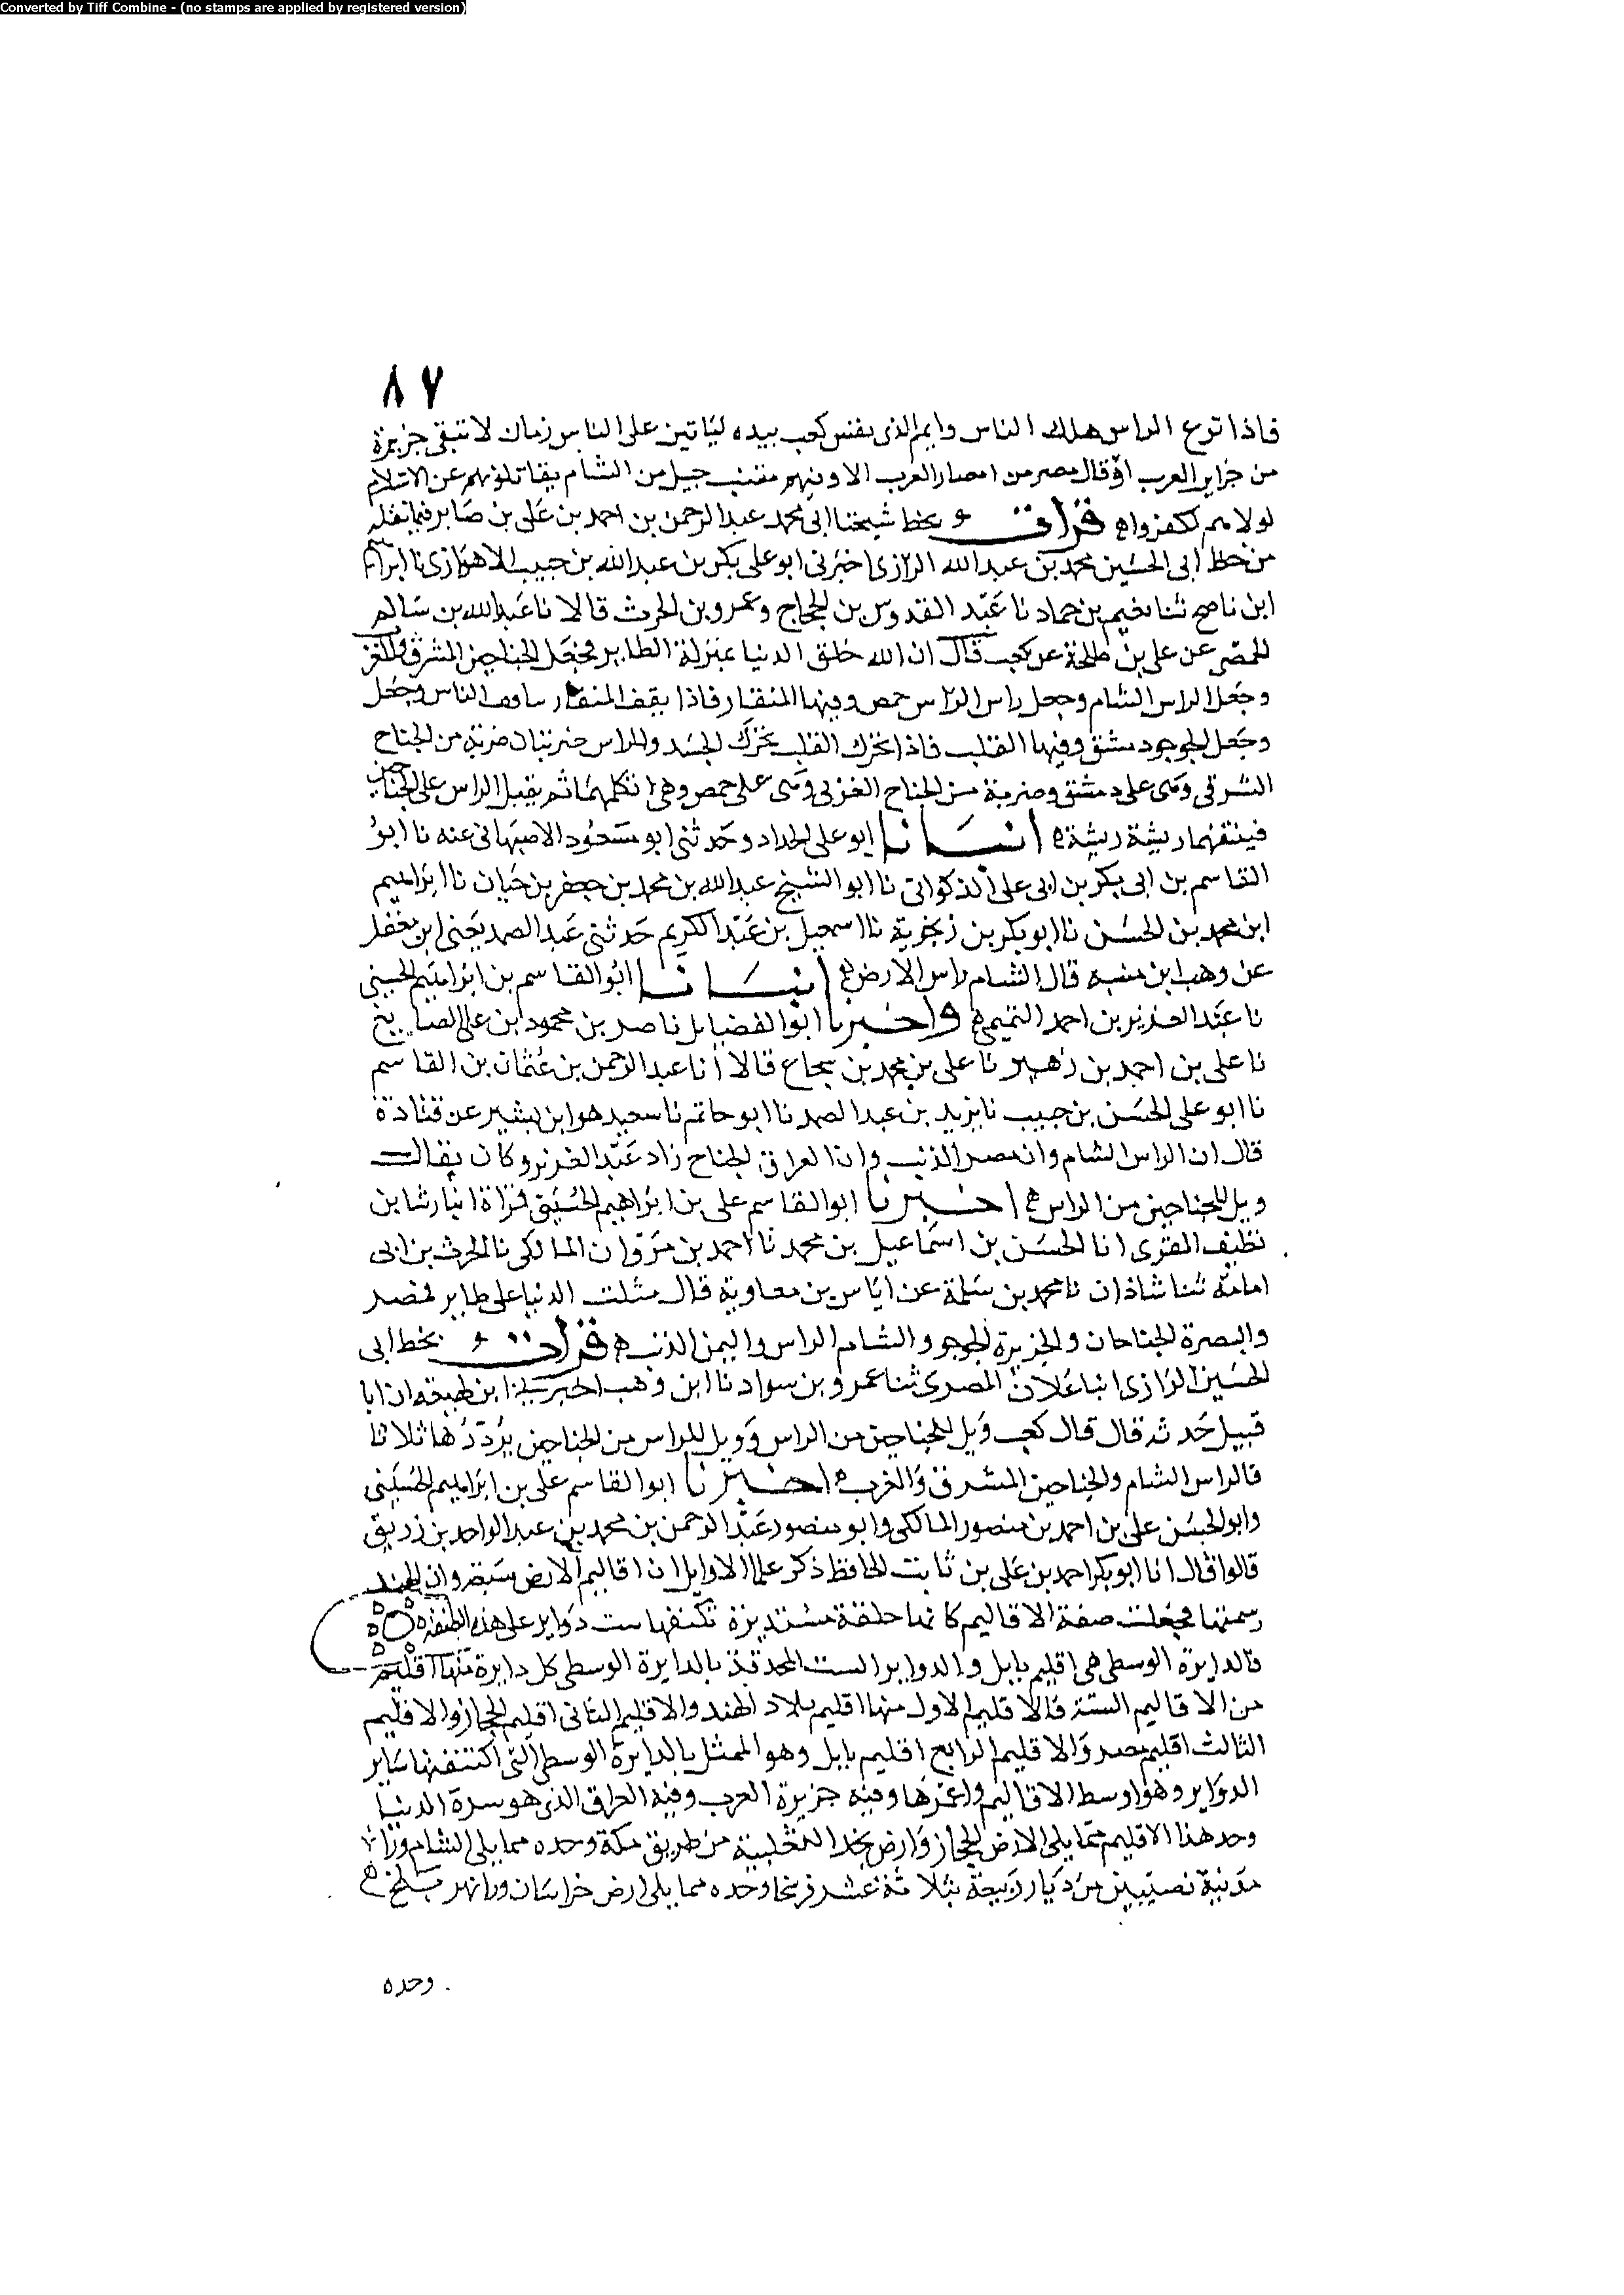 Converted by Tiff Combine - (no stamps are applied by registered version)
٨٧
فاذا نزع الراس هلك الناس وايم الذى نفس كعب بيده لياتين على الناس زمان لا تبقى جزيرة
من جزاير العرب او قال مصر من امصار العرب الا وفيهم مقنب خيل من الشام يقاتلونهم عن الاسلام
لولاهم لكفروا ه قرات بخط شيخنا ابى محمد عبد الرحمن بن احمد بن على بن صابر فيما نقله
من خط ابى الحسين محمد بن عبد الله الرازى اخبرنى ابو على بكر بن عبد الله بن حبيب الاهوازى نا ابراهيم
ابن ناصح ثنا نعيم بن حماد نا عبد القدوس بن الحجاج وعمرو بن الحرث قالا نا عبد الله بن سالم
الحمصى عن على بن طلحة عن كعب قال ان الله خلق الدنيا بمنزلة الطاير فجعل الجناحين المشرق والمغرب
وجعل الراس الشام وجعل راس الراس حمص وفيها المنقار فاذا يقف المنقار الناس وجعل
وجعل الجوجو دمشق وفيها القلب فاذا تحرك القلب تحرك الجسد وللراس ضربتان ضربة من الجناح
الشرقى وهى على دمشق وضربة من الجناح الغربى وهى على حمص وهى ثم يقبل الراس على الجناحين
فينتفهما ريشة ريشة ه انبانا ابو على الحداد وحدثنى ابو مسعود الاصبهانى عنه نا ابو
القاسم بن ابى بكر بن ابى على الذكوانى نا ابو الشيخ عبد الله بن محمد بن جعفر بن حيان نا ابراهيم
ابن محمد بن الحسن نا ابو بكر بن زنجوية نا اسمعيل بن عبد الكريم حدثنى عبد الصمد يعنى ابن معقل
عن وهب ابن منبه قال الشام راس الارض ه انبانا ابو القاسم بن ابراهيم الحسينى
نا عبد العزيز بن احمد التميمى ه واخبرنا ابو الفضايل ناصر بن محمود ابن على الصايغ
نا على بن احمد بن زهير نا على بن محمد بن شجاع قالا انا عبد الرحمن بن عثمان بن القاسم
نا ابو على الحسن بن حبيب نا يزيد بن عبد الصمد نا ابو حاتم نا سعيد هو ابن بشير عن قتادة
قال ان الراس الشام وان مصر الذنب وان العراق الجناح زاد عبد العزيز وكان يقال
ويل للجناحين من الراس ه اخبرنا ابو القاسم على بن ابراهيم الحسينى قراة انبا رشا بن
نظيف المقرى انا الحسن بن اسماعيل بن محمد نا احمد بن مروان المالكى نا الحرث بن ابى
امامة ثنا شاذان نا محمد بن سلمة عن اياس بن معاوية قال مثلت الدنيا على طاير فمصر
والبصرة الجناحان والجزيرة الجوجو والشام الراس واليمن الذنب ه قرات بخط ابى
الحسين الرازى انبا علان المصرى ثنا عمرو بن سواد نا ابن وهب اخبرنى ابن لهيعه ان ابا
قبيل حدثه قال قال كعب ويل للجناحين من الراس وويل للراس من الجناحين يرددها ثلاثا
فالراس الشام والجناحين المشرق والغرب ه اخبرنا ابو القاسم على بن ابراهيم الحسينى
وابو الحسن على بن احمد بن منصور المالكى وابو منصور عبد الرحمن بن محمد بن عبد الواحد بن زريق
قالوا قال انا ابو بكر احمد بن على بن ثابت الحافظ ذكر علما الاوايل ان اقاليم الارض سبعة وان الهند
رسمتها فجعلت صفة الاقاليم كانها حلقة مستديرة تكتنفها ست دواير على هذه الصفه
فالدايرة الوسطى هى اقليم بابل والدواير الست المحدقة بالدايرة الوسطى كل دايرة منها اقليم
من الاقاليم الستة فالاقليم الاول منها اقليم بلاد الهند والاقليم الثانى اقليم الحجاز والاقليم
الثالث اقليم مصر والاقليم الرابع اقليم بابل وهو الممثل بالدايرة الوسطى التى اكتنفتها ساير
الدواير وهو اوسط الاقاليم واعمرها وفيه جزيرة العرب وفيه العراق الذى هو سرة الدنيا
وحد هذا الاقليم مما يلى الارض الحجاز وارض نجد الثعلبية من طريق مكة وحده مما يلى الشام ورا
مدينة نصيبين من ديار ربيعة بثلاثة عشر فرسخا وحده مما يلى ارض خراسان ورا نهر بلخ ه
وحده